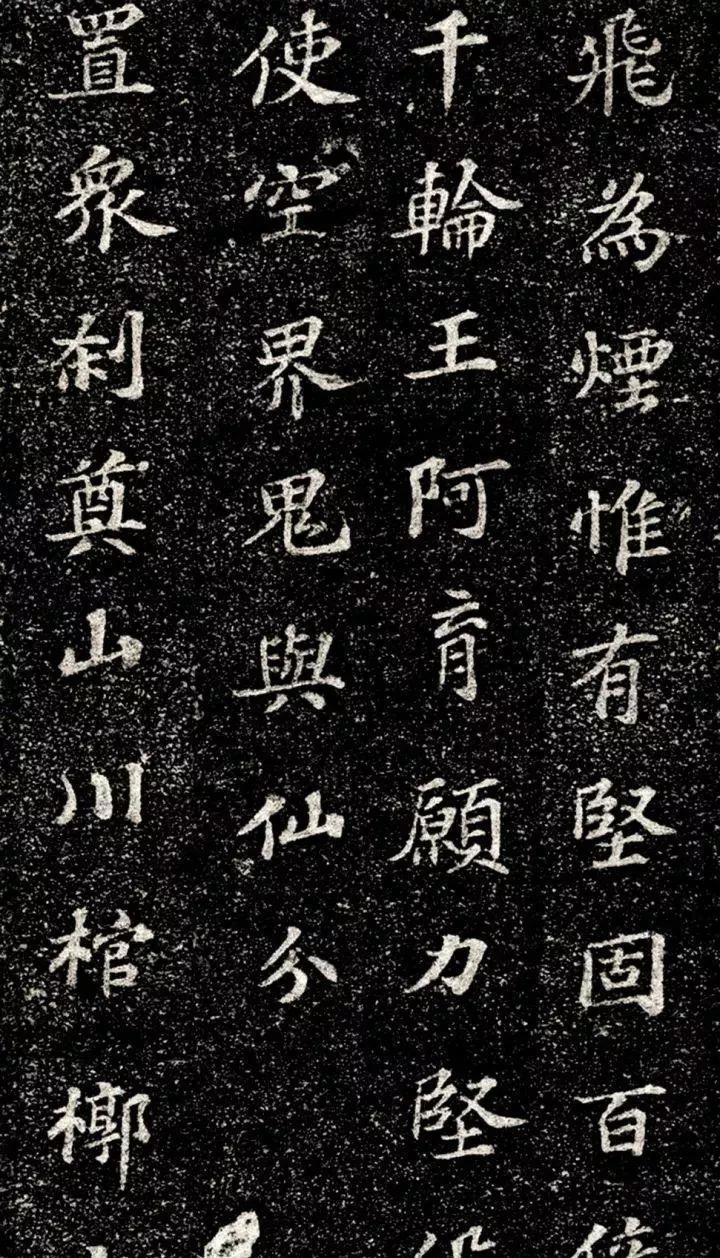 飛為煙惟有堅固百
千輪王阿育願力堅
使空界鬼與仙分
置衆刹奠山川棺槨